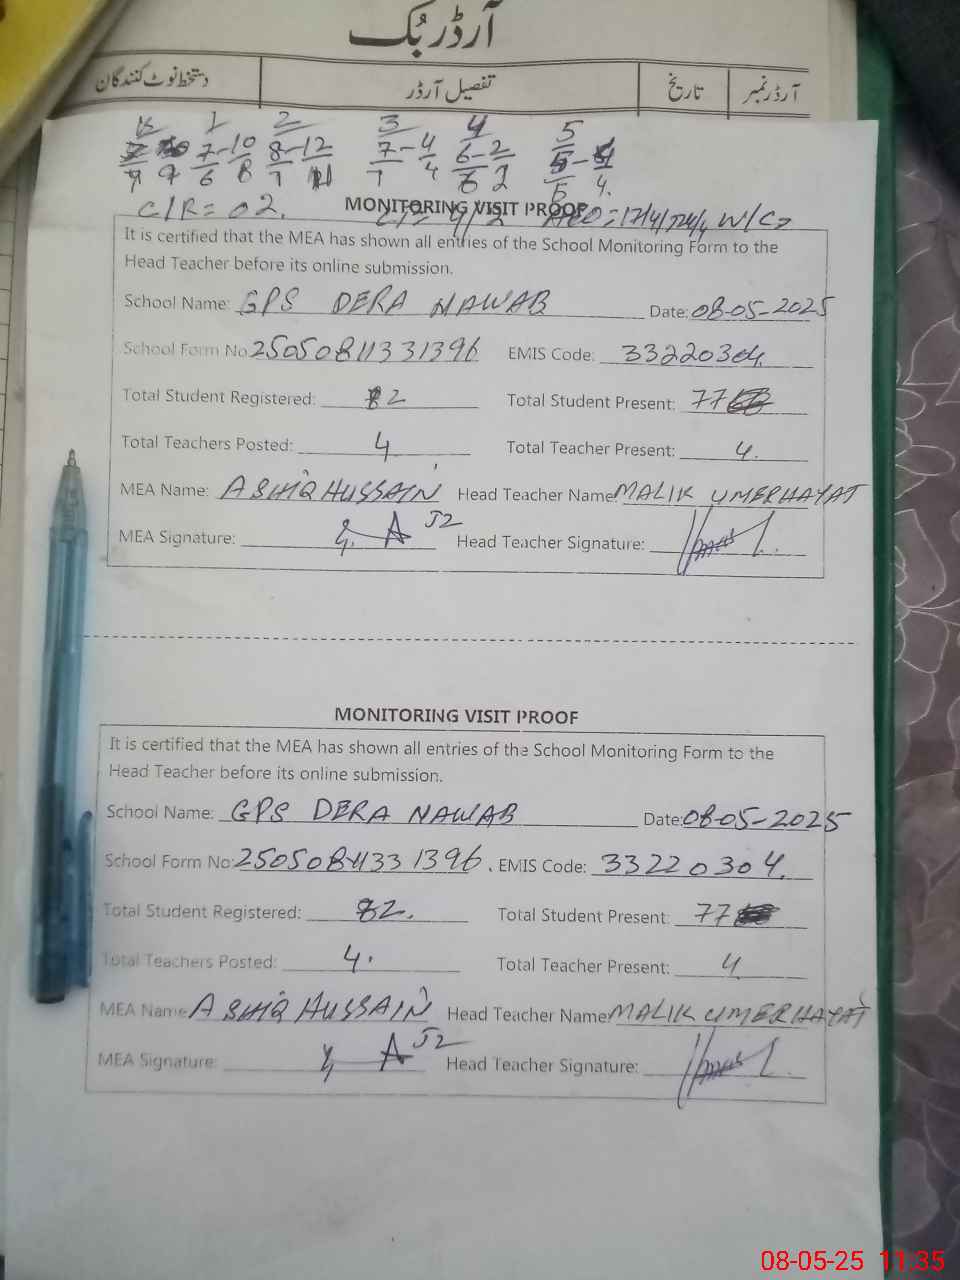 آرڈر بُک
آرڈر نمبر تاریخ تفصیل آرڈر دستخط نوٹ کنندگان
K 1 2 3 4 5
7-10 8-12 7-4 6-2
9 9 6 8 7 11 7 4 6 2 5 4.
C/R = 02.
MONITORING VISIT PROOF
It is certified that the MEA has shown all entries of the School Monitoring Form to the
Head Teacher before its online submission.
School Name: GPS DERA NAWAB Date: 08-05-2025
School Form No 2505081331396 EMIS Code: 33220304.
Total Student Registered: 82 Total Student Present: 77
Total Teachers Posted: 4 Total Teacher Present: 4.
MEA Name: ASHIQ HUSSAIN Head Teacher Name: MALIK UMER HAYAT
MEA Signature: 52 Head Teacher Signature:
MONITORING VISIT PROOF
It is certified that the MEA has shown all entries of the School Monitoring Form to the
Head Teacher before its online submission.
School Name: GPS DERA NAWAB Date: 08-05-2025
School Form No: 2505081331396. EMIS Code: 33220304.
Total Student Registered: 82. Total Student Present: 77
Total Teachers Posted: 4. Total Teacher Present: 4
MEA Name: ASHIQ HUSSAIN Head Teacher Name: MALIK UMER HAYAT
MEA Signature: 52 Head Teacher Signature:
08-05-25 11:35